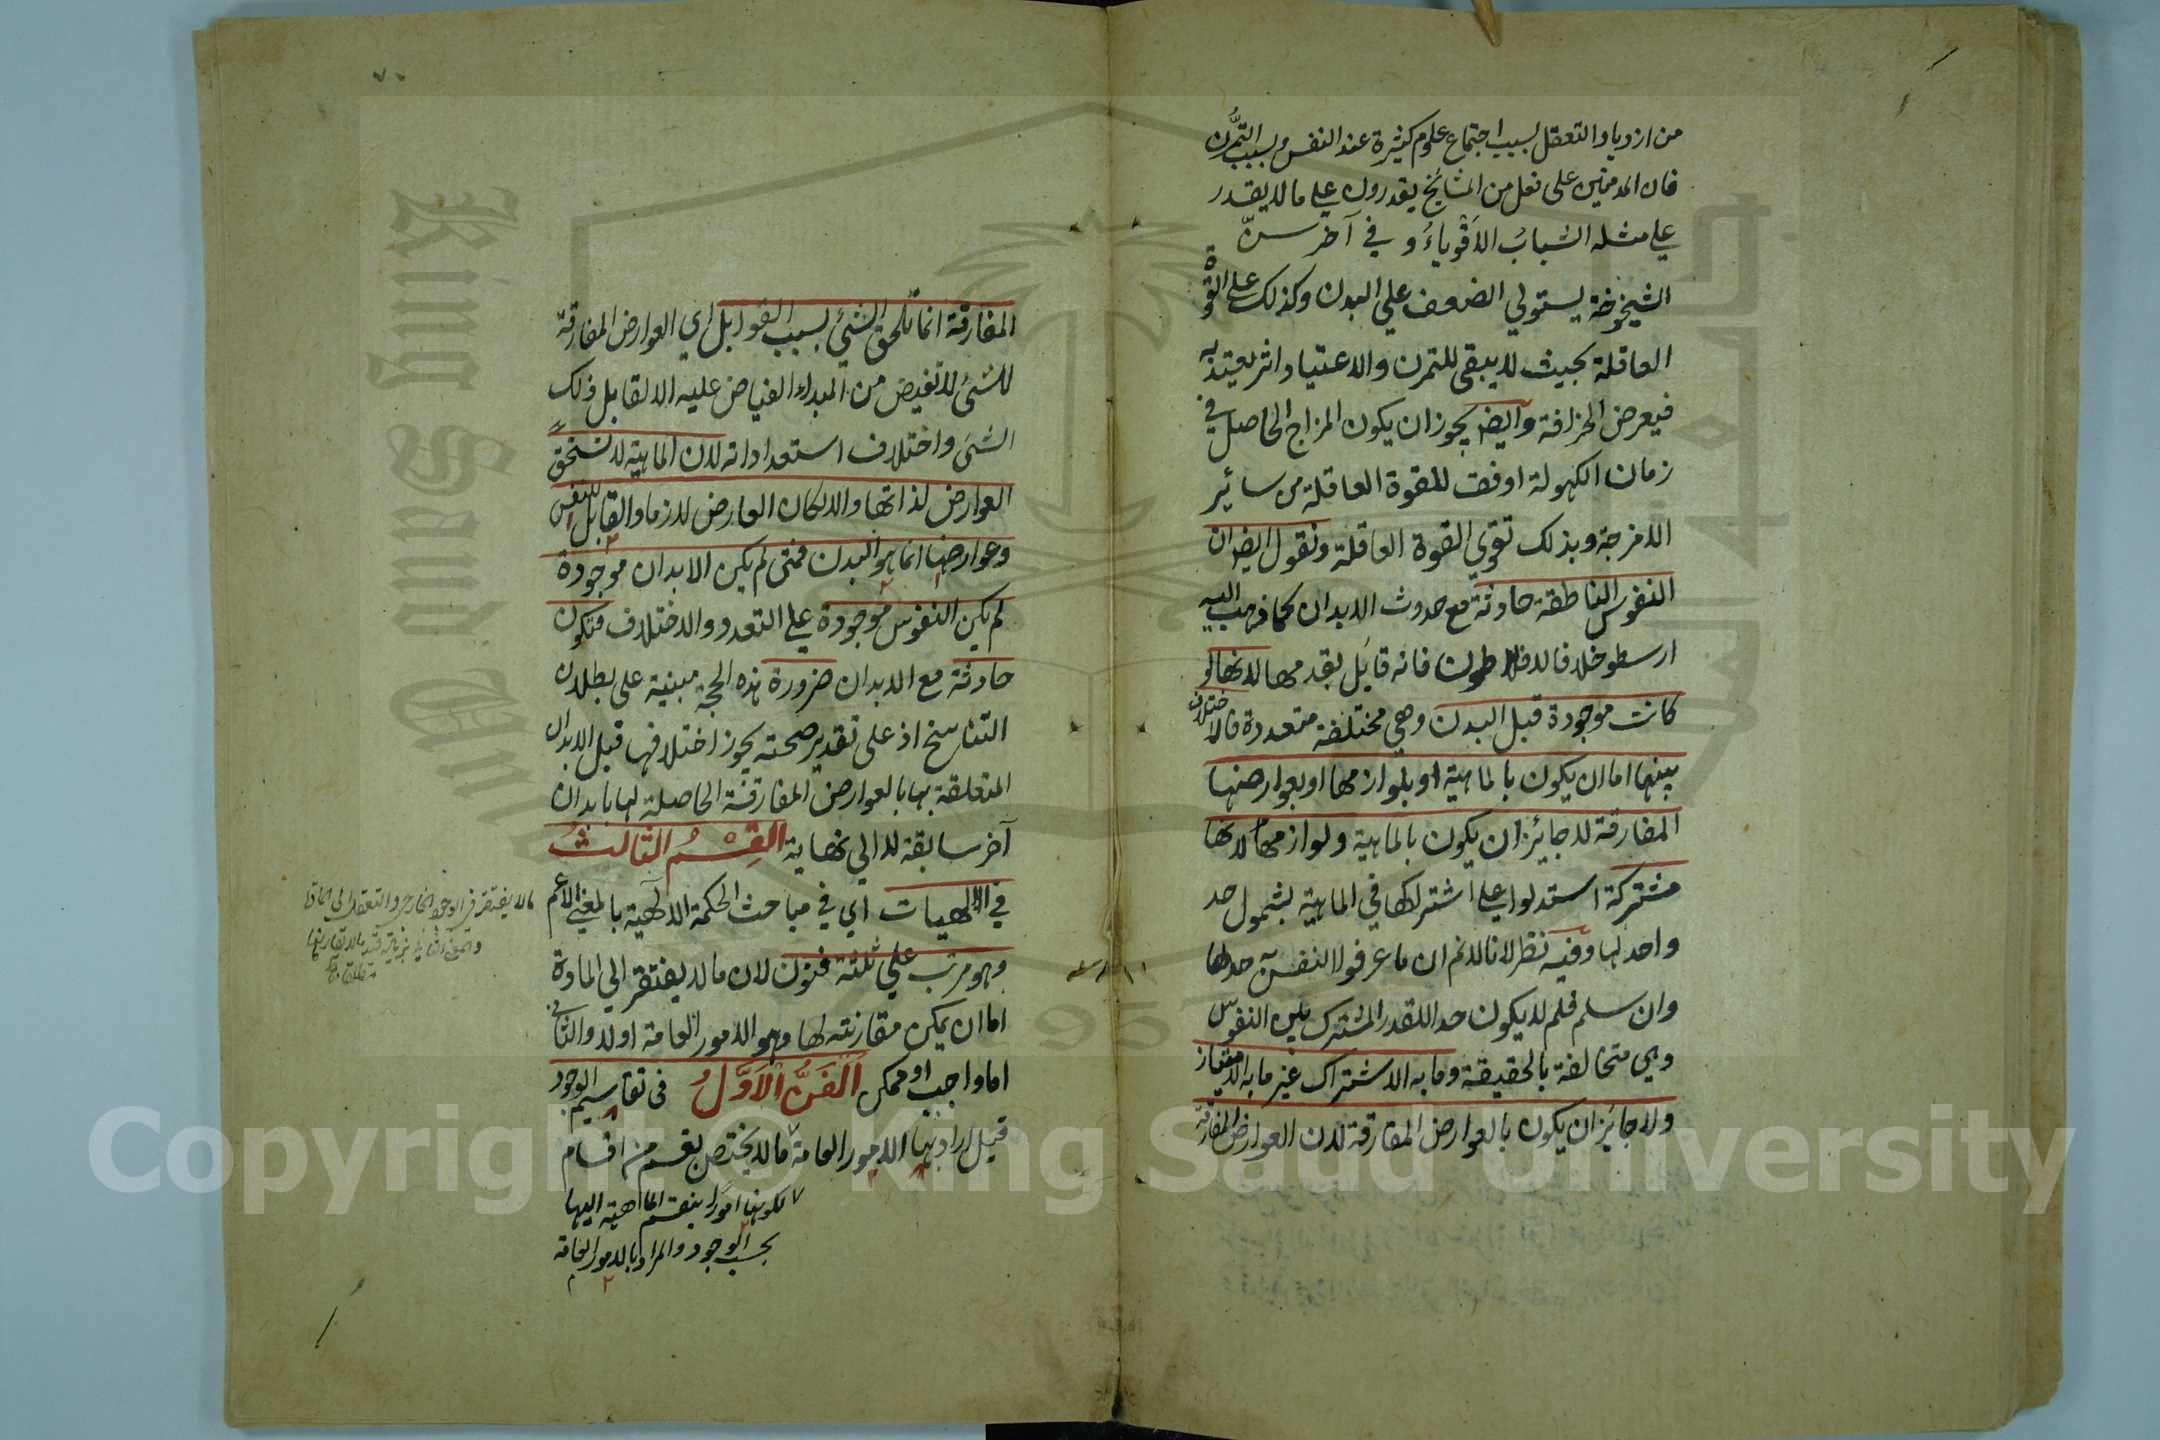 من ازدياد التعقل بسبب اجتماع علوم كثيرة عند النفس وبسبب التمرُّن
فان المدمنين على فعل من المشائخ يقدرون على ما لا يقدر
على مثله الشبابُ الاَقْوِياءُ و في آخر سنّ
الشيخوخة يستولي الضعف علي البدن وكذلك على القوة
العاقلة بحيث لا يبقى للتمرن والاعتياد اثر يعتد به
فيعرض الخرافة وايضا يجوز ان يكون المزاج الحاصل في
زمان الكهولة اوفق للقوة العاقلة من سائر
الامزجة وبذلك تقوي القوة العاقلة ونقول ايضا ان
النفوس الناطقة حادثة مع حدوث الابدان كما ذهب اليه
ارسطو خلافا لافلاطون فانه قائل بقدمها لانها لو
كانت موجودة قبل البدن وهي مختلفة متعددة فالاختلاف
بينها اما ان يكون بالماهية او بلوازمها او بعوارضها
المفارقة لا جايز ان يكون بالماهية ولوازمها لانها
مشتركة استدلوا على اشتراكها في الماهية بشمول حد
واحد لها وفيه نظر لانا لا نم ان ما عرفوا النفس به حد لها
وان سلم فلم لا يكون حدا للقدر المشترك بين النفوس
وهي متخالفة بالحقيقة وما به الاشتراك غير ما به الامتياز
ولا جايز ان يكون بالعوارض المفارقة لان العوارض المفارقة
المفارقة انما تلحق الشئ بسبب القوابل اي العوارض المفارقة
للشئ لا تفيض من المبداء الفياض عليه الا لقابل ذلك
الشئ واختلاف استعداداته لان الماهية لا تستحق
العوارض لذاتها والا لكان العارض لازما والقابل للنفس
وعوارضها انما هو البدن فمتى لم يكن الابدان موجودة
لم يكن النفوس موجودة علي التعدد والاختلاف فتكون
حادثة مع الابدان ضرورة هذه الحجة مبنية على بطلان
التناسخ اذ على تقدير صحته يجوز اختلافها قبل الابدان
المتعلقة بها بالعوارض المفارقة الحاصلة لها بابدان
آخر سابقة لا الي نهاية القِسْمُ الثالثُ
في الالهيات اي في مباحث الحكمة الالهية بالمعني الاعم
وهو مرتب علي ثلثة فنون لان ما لا يفتقر الي المادة
اما ان يمكن مقارنته لها وهو الامور العامة اولا والثاني
اما واجب او ممكن اَلْفَنُّ الْاَوَّلُ فى تقاسيم الوجود
قيل اراد بها الامور العامة ما لا يختص بقسم من اقسام
لكونها امورًا ينقسم الماهية اليها
بحسب الوجود والمراد بالامور العامة
ما لا يفتقر في الوجود الخارجي والتعقل الى المادة
King Saud University
1957
Copyright © King Saud University